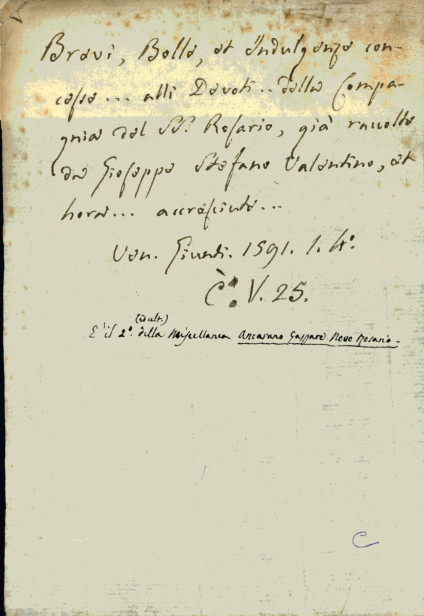 Brevi, Bolle, et Indulgenze con-
cesse... alli Devoti.. della Compa-
gnia del SS. Rosario, già raccolte
da Gioseppe Stefano Valentino, et
hora... accresciute...
Ven. Giunti. 1591. 1. 4°.
C. V. 25.
(ed ult.)
E' il 2°. della Miscellanea Ancarano Gaspare Novo Rosario.
C